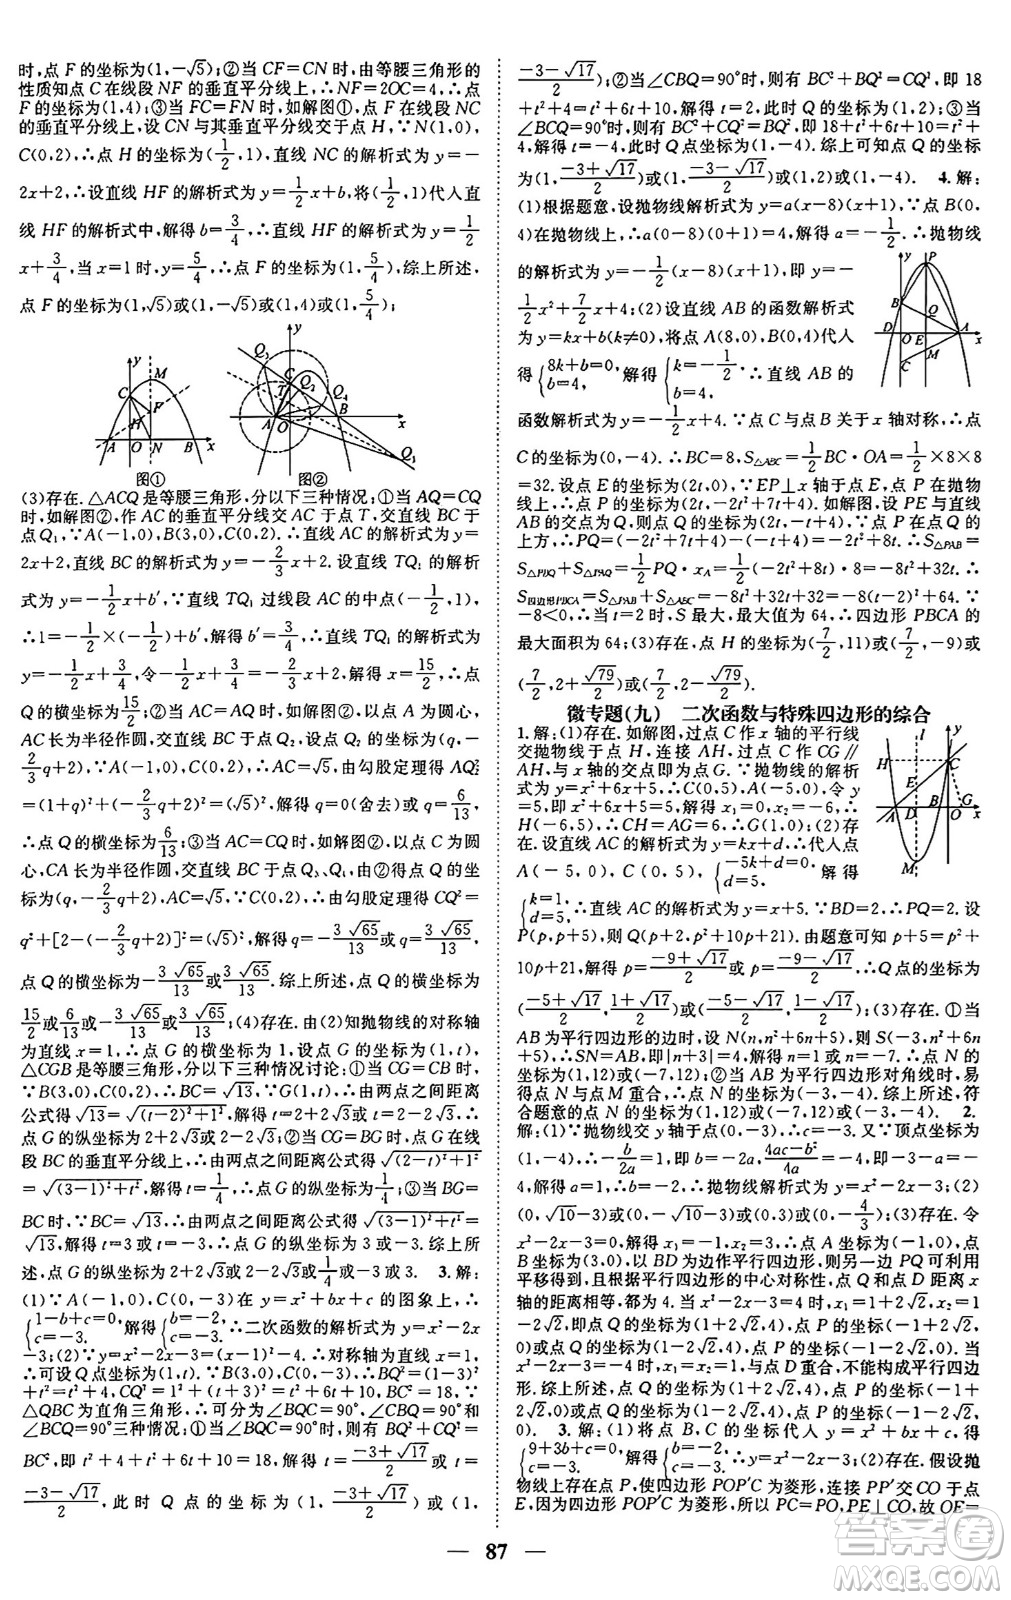 时,点 F 的坐标为(1,-√5);②当 CF=CN 时,由等腰三角形的
性质知点 C 在线段 NF 的垂直平分线上,∴NF=2OC=4,∴点
F 的坐标为(1,4);③当 FC=FN 时,如解图①,点 F 在线段 NC
的垂直平分线上,设 CN 与其垂直平分线交于点 H,∵N(1,0),
C(0,2),∴点 H 的坐标为(1/2,1),直线 NC 的解析式为 y=-
2x+2,∴设直线 HF 的解析式为 y=1/2x+b,将(1/2,1)代入直
线 HF 的解析式中,解得 b=3/4,∴直线 HF 的解析式为 y=1/2
x+3/4,当 x=1 时,y=5/4,∴点 F 的坐标为(1,5/4),综上所述,
点 F 的坐标为(1,√5)或(1,-√5)或(1,4)或(1,5/4);
图① 图②
(3)存在.△ACQ 是等腰三角形,分以下三种情况:①当 AQ=CQ
时,如解图②,作 AC 的垂直平分线交 AC 于点 T,交直线 BC 于
点 Q₁,∵A(-1,0),B(3,0),C(0,2),∴直线 AC 的解析式为 y=
2x+2,直线 BC 的解析式为 y=-2/3x+2.设直线 TQ₁ 的解析式
为 y=-1/2x+b′,∵直线 TQ₁ 过线段 AC 的中点(-1/2,1),
∴1=-1/2×(-1/2)+b′,解得 b′=3/4,∴直线 TQ₁ 的解析式为
y=-1/2x+3/4,令-1/2x+3/4=-2/3x+2,解得 x=15/2,∴点
Q 的横坐标为15/2;②当 AQ=AC 时,如解图②,以点 A 为圆心,
AC 长为半径作圆,交直线 BC 于点 Q₂,设点 Q₂ 的坐标为(q,-
2/3q+2),∵A(-1,0),C(0,2),∴AC=√5,由勾股定理得 AQ₂²
=(1+q)²+(-2/3q+2)²=(√5)²,解得 q=0(舍去)或 q=6/13,
∴点 Q 的横坐标为6/13;③当 AC=CQ 时,如解图②,以点 C 为圆
心,CA 长为半径作圆,交直线 BC 于点 Q₃、Q₄,设点 Q 的坐标
为(q,-2/3q+2),∵A(-1,0),C(0,2),∴AC=√5,∴CQ²=
q²+[2-(-2/3q+2)]²=(√5)²,解得 q=3√65/13或 q=-3√65/13,
点 Q 的横坐标为3√65/13或-3√65/13.综上所述,点 Q 的横坐标为
15/2或6/13或-3√65/13或3√65/13;(4)存在.由(2)知抛物线的对称轴
为直线 x=1,∴点 G 的横坐标为 1,设点 G 的坐标为(1,t),
△CGB 是等腰三角形,分以下三种情况讨论:①当 CG=CB 时,
∵B(3,0),C(0,2),∴BC=√13,∵G(1,t),∴由两点之间距离
公式得√13=√((t-2)²+1²),解得 t=2+2√3或 t=2-2√3,∴
点 G 的纵坐标为 2+2√3或 2-2√3;②当 CG=BG 时,点 G 在线
段 BC 的垂直平分线上,∴由两点之间距离公式得√((t-2)²+1²)
=√((3-1)²+t²),解得 t=1/4,∴点 G 的纵坐标为1/4;③当 BG=
BC 时,∵BC=√13,∴由两点之间距离公式得√((3-1)²+t²)=
√13,解得 t=3 或 t=-3,∴点 G 的纵坐标为 3 或-3.综上所
述,点 G 的纵坐标为 2+2√3或 2-2√3或1/4或-3 或 3. 3.解:
(1)∵A(-1,0),C(0,-3)在 y=x²+bx+c 的图象上,∴
{1-b+c=0,c=-3.解得{b=-2,c=-3.∴二次函数的解析式为 y=x²-2x
-3;(2)∵y=x²-2x-3=(x-1)²-4,∴对称轴为直线 x=1,
∴可设 Q 点坐标为(1,t).∵B(3,0),C(0,-3),∴BQ²=(1-3)²
+t²=t²+4,CQ²=1²+(t+3)²=t²+6t+10,BC²=18,∵
△QBC 为直角三角形,∴可分为∠BQC=90°、∠CBQ=90°和
∠BCQ=90°三种情况,①当∠BQC=90°时,则有 BQ²+CQ²=
BC²,即 t²+4+t²+6t+10=18,解得 t=(-3+√17)/2或 t=
(-3-√17)/2,此时 Q 点的坐标为(1,(-3+√17)/2)或(1,
(-3-√17)/2);②当∠CBQ=90°时,则有 BC²+BQ²=CQ²,即 18
+t²+4=t²+6t+10,解得 t=2,此时 Q 点的坐标为(1,2);③当
∠BCQ=90°时,则有 BC²+CQ²=BQ²,即 18+t²+6t+10=t²+
4,解得 t=-4,此时 Q 点坐标为(1,-4).综上可知点 Q 的坐标
为(1,(-3+√17)/2)或(1,(-3-√17)/2)或(1,2)或(1,-4). 4.解:
(1)根据题意,设抛物线解析式为 y=a(x-8)(x+1),∵点 B(0,
4)在抛物线上,∴a(0-8)×(0+1)=4,解得 a=-1/2,∴抛物线
的解析式为 y=-1/2(x-8)(x+1)=-
1/2x²+7/2x+4;(2)设直线 AB 的函数解析式
为 y=kx+b(k≠0),将点 A(8,0),B(0,4)代入
得{8k+b=0,b=4,解得{k=-1/2,b=4,∴直线 AB 的
函数解析式为 y=-1/2x+4.∵点 C 与点 B 关于 x 轴对称,∴点
C 的坐标为(0,-4),∴BC=8,S△ABC=1/2BC·OA=1/2×8×8
=32.设点 E 的坐标为(2t,0),∵EP⊥x 轴于点 E,点 P 在抛物
线上,∴点 P 的坐标为(2t,-2t²+7t+4),如解图,设 PE 与直线
AB 的交点为 Q,则点 Q 的坐标为(2t,-t+4),∵点 P 在点 Q 的
上方,∴PQ=(-2t²+7t+4)-(-t+4)=-2t²+8t,∴S△PAB=
S△PBQ+S△PAQ=1/2PQ·xA=1/2(-2t²+8t)·8=-8t²+32t,∴
S四边形PBCA=S△PAB+S△ABC=-8t²+32t+32=-8(t-2)²+64.∵
-8<0,∴当 t=2 时,S 最大,最大值为 64,∴四边形 PBCA 的
最大面积为 64;(3)存在,点 H 的坐标为(7/2,11)或(7/2,-9)或
(7/2,2+√79/2)或(7/2,2-√79/2).
微专题(九) 二次函数与特殊四边形的综合
1.解:(1)存在.如解图,过点 C 作 x 轴的平行线
交抛物线于点 H,连接 AH,过点 C 作 CG∥
AH,与 x 轴的交点即为点 G.∵抛物线的解析
式为 y=x²+6x+5,∴C(0,5),A(-5,0),令
y=5,即 x²+6x+5=5,解得 x₁=0,x₂=-6,∴
H(-6,5),∴CH=AG=6,∴G(1,0);(2)存
在.设直线 AC 的解析式为 y=kx+d,∴代入点
A(-5,0),C(0,5),{-5k+d=0,d=5.解得
{k=1,d=5,∴直线 AC 的解析式为 y=x+5.∵BD=2,∴PQ=2.设
P(p,p+5),则 Q(p+2,p²+10p+21).由题意可知 p+5=p²+
10p+21,解得 p=(-9+√17)/2或 p=(-9-√17)/2,∴Q 点的坐标为
((-5+√17)/2,(1+√17)/2)或((-5-√17)/2,(1-√17)/2);(3)存在.①当
AB 为平行四边形的边时,设 N(n,n²+6n+5),则 S(-3,n²+6n
+5),∴SN=AB,即|n+3|=4,解得 n=1 或 n=-7,∴点 N 的
坐标为(1,12)或(-7,12);②当 AB 为平行四边形对角线时,易
得点 N 与点 M 重合,∴点 N 的坐标为(-3,-4).综上所述,符
合题意的点 N 的坐标为(1,12)或(-7,12)或(-3,-4). 2.
解:(1)∵抛物线交 y 轴于点(0,-3),∴c=-3.又∵顶点坐标为
(1,-4),∴-b/2a=1,即 b=-2a,(4ac-b²)/4a=-4,即-3-a=-
4,解得 a=1,∴b=-2,∴抛物线解析式为 y=x²-2x-3;(2)
(0,√10-3)或(0,-√10-3)或(0,3)或(0,-4/3);(3)存在.令
x²-2x-3=0,解得 x₁=-1,x₂=3,∴点 A 坐标为(-1,0),点
B 坐标为(3,0),以 BD 为边作平行四边形,则另一边 PQ 可利用
平移得到,∴根据平行四边形的中心对称性,点 Q 和点 D 到 x
轴的距离相等,都为 4.令 x²-2x-3=4,解得 x₁=1+2√2,x₂=
1-2√2,即点 Q 的坐标为(1+2√2,4),点 P 的坐标(-1+2√2,
0),点 Q 的坐标(1-2√2,4),点 P 的坐标(-1-2√2,0).当
x²-2x-3=-4 时,x₁=x₂=1,点 Q 与点 D 重合,不能构成平行四边
形.综上所述,点 Q 的坐标为(1+2√2,4),点 P 的坐标(-1+
2√2,0)或点 Q 的坐标为(1-2√2,4),点 P 的坐标(-1-2√2,
0). 3.解:(1)将点 B,C 的坐标代入 y=x²+bx+c,得
{9+3b+c=0,c=-3.解得{b=-2,c=-3.∴y=x²-2x-3;(2)存在,假设抛
物线上存在点 P,使四边形 POP′C 为菱形,连接 PP′交 CO 于点
E,因为四边形 POP′C 为菱形,所以 PC=PO,PE⊥CO,故 OE=
— 87 —
答案圈